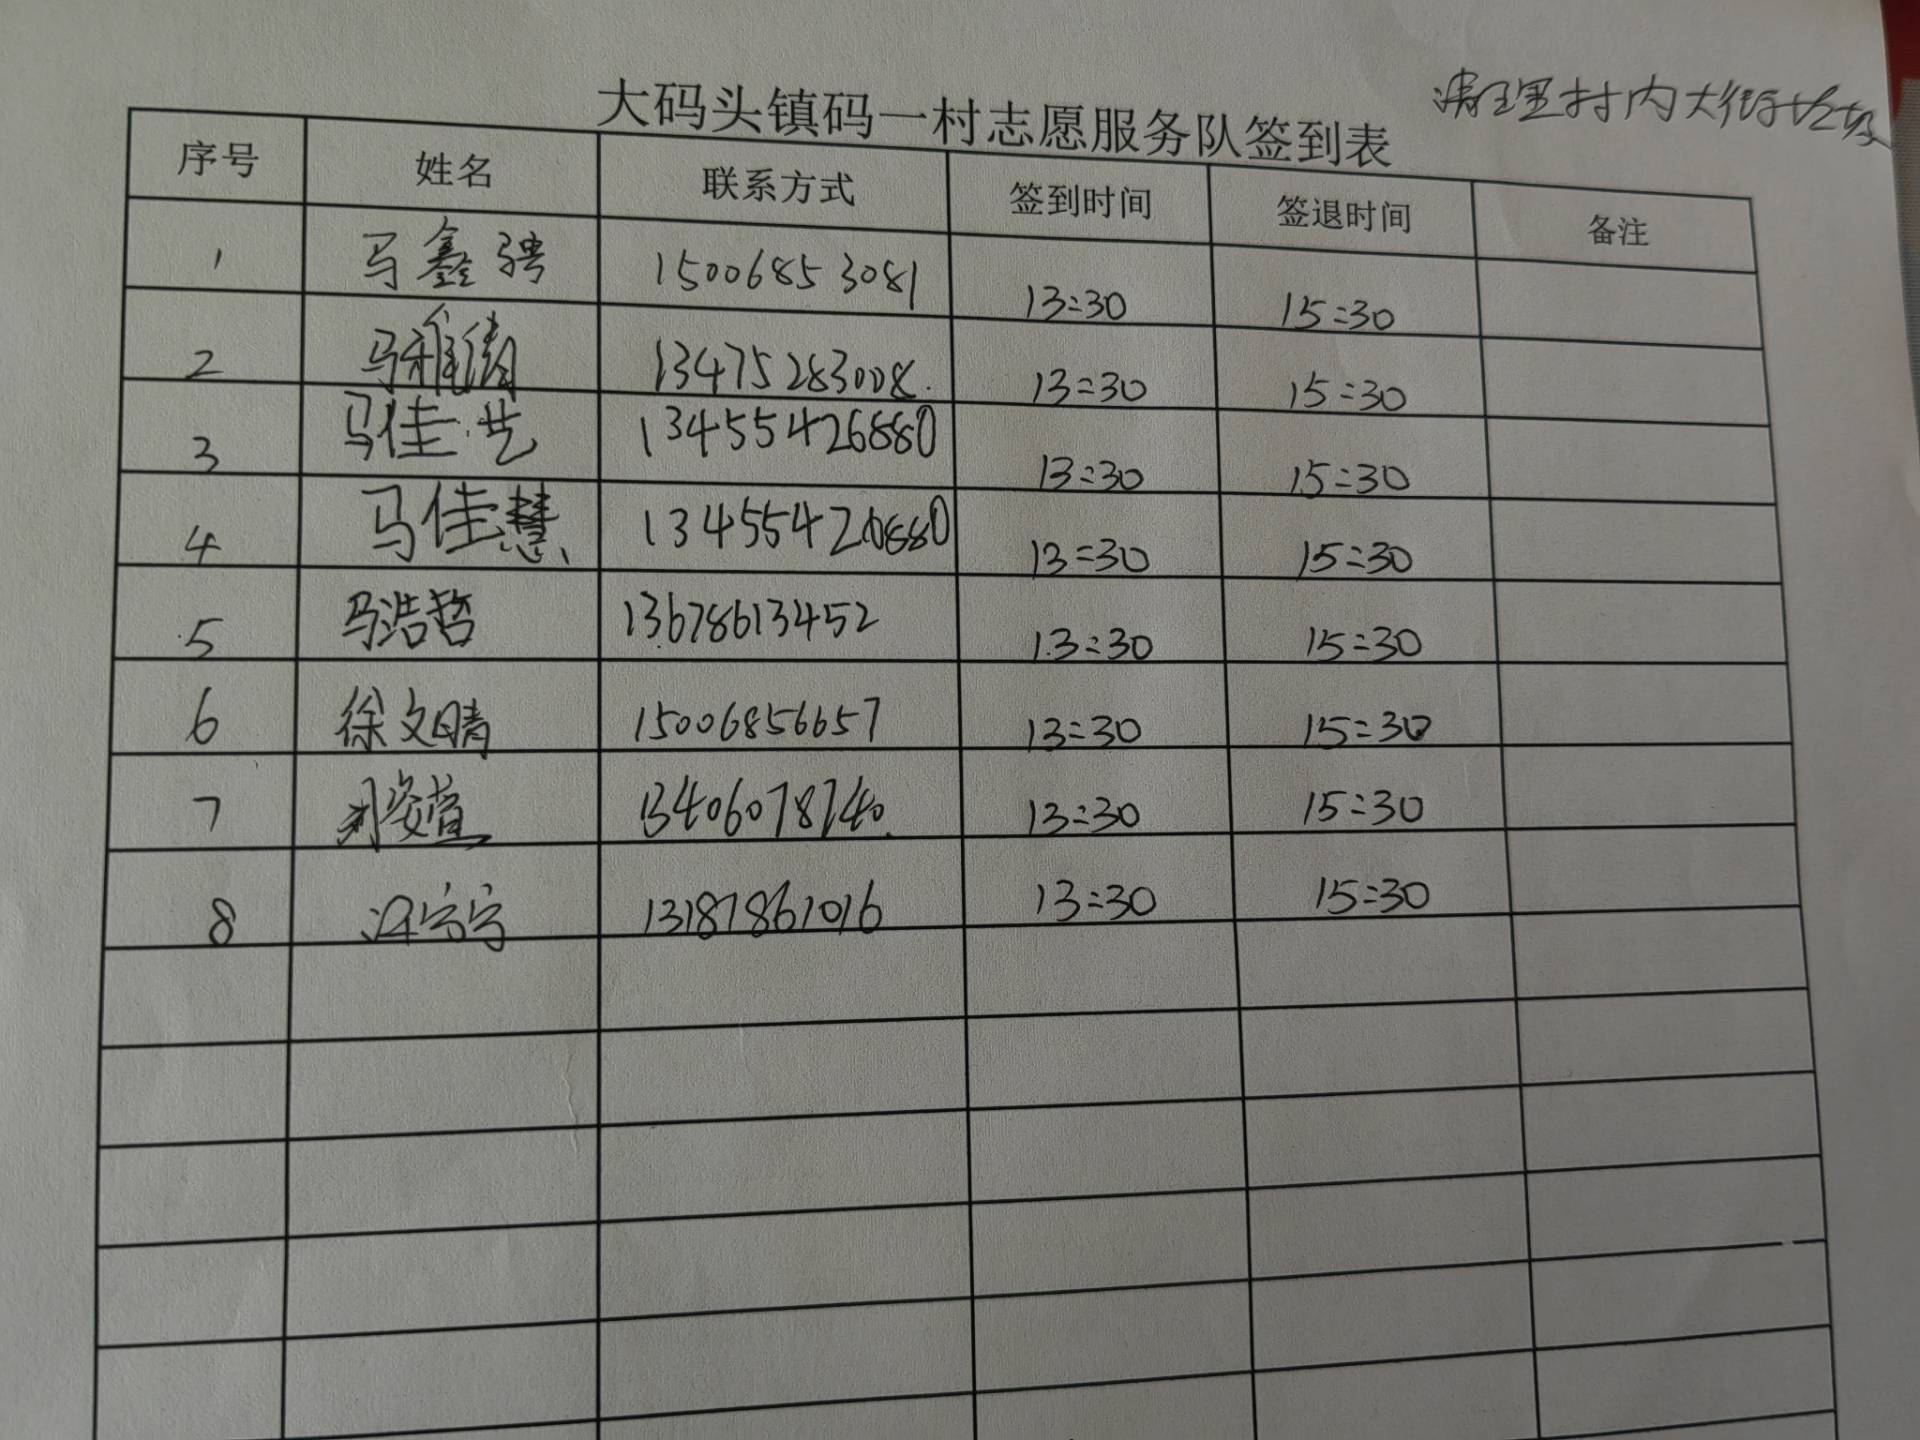 清理村内大街垃圾
大码头镇码一村志愿服务队签到表
序号 姓名 联系方式 签到时间 签退时间 备注
1 马鑫骋 15006853081 13:30 15:30
2 马雅倩 13475283008 13:30 15:30
3 马佳艺 13455426880 13:30 15:30
4 马佳慧 13455426880 13:30 15:30
5 马浩哲 13678613452 13:30 15:30
6 徐文晴 15006856657 13:30 15:30
7 刘姿萱 13406078740 13:30 15:30
8 13187861016 13:30 15:30